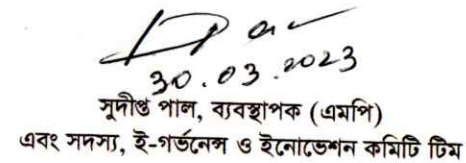 30.03.2023
সুদীপ্ত পাল, ব্যবস্থাপক (এমপি)
এবং সদস্য, ই-গর্ভনেন্স ও ইনোভেশন কমিটি টিম